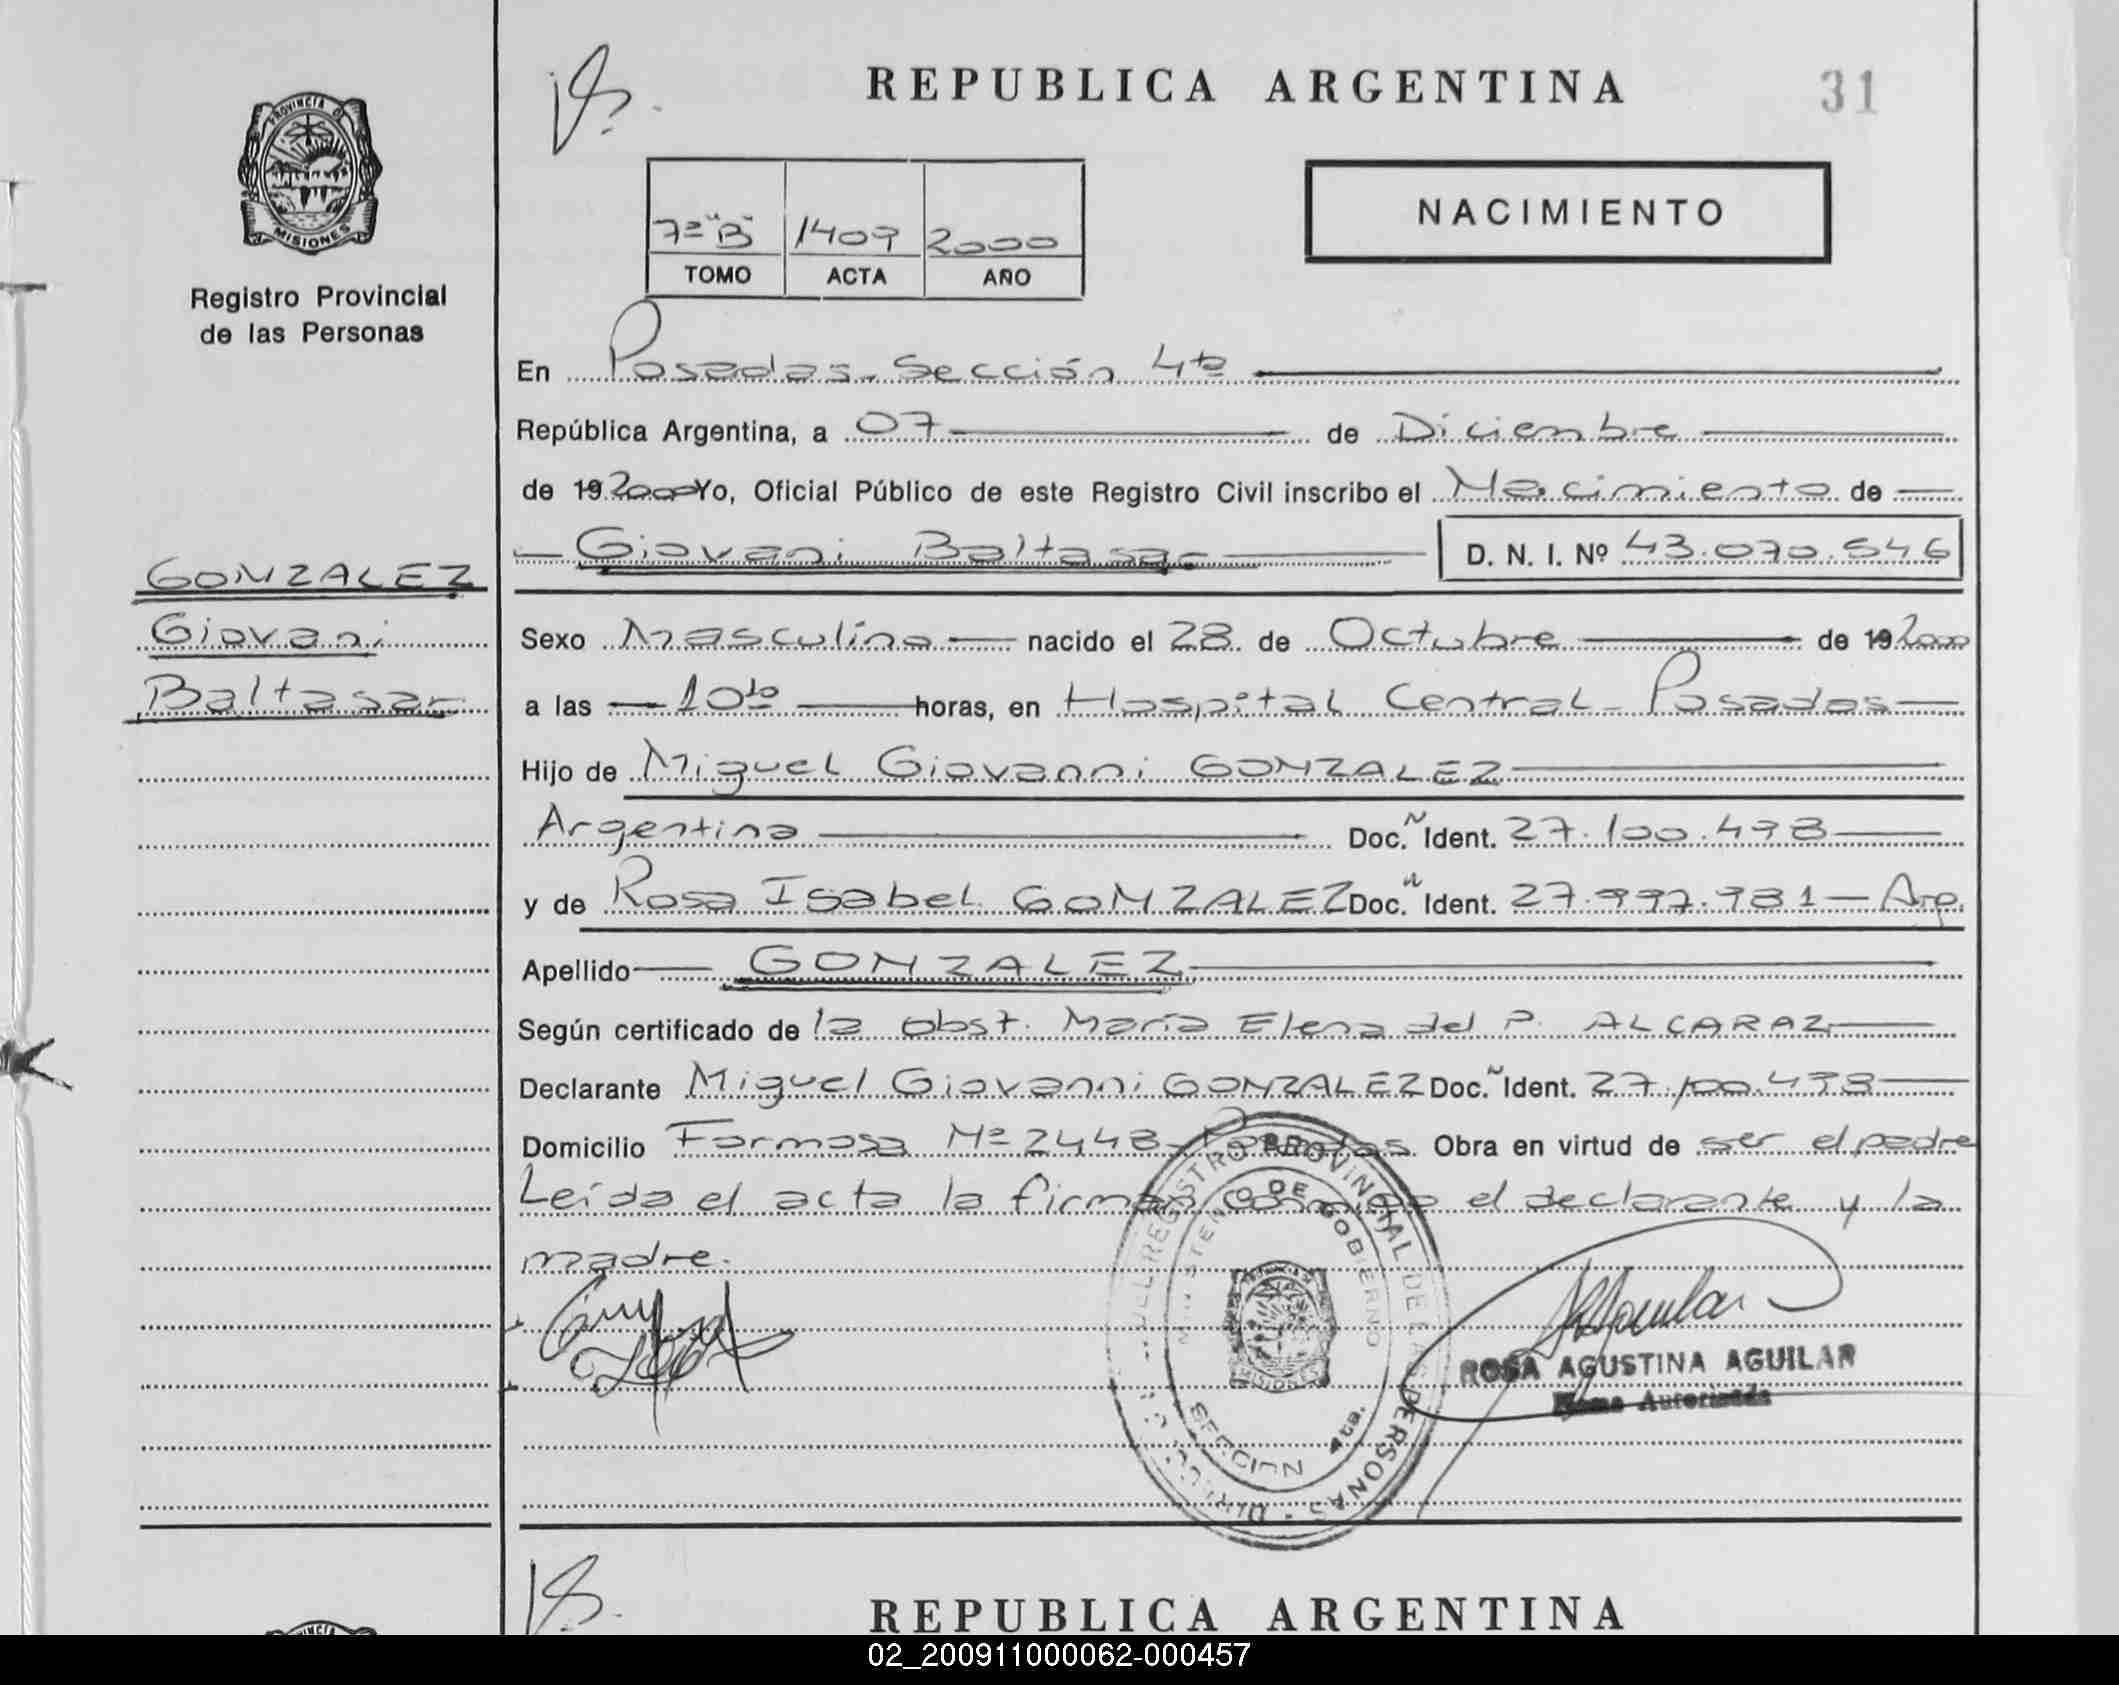 REPUBLICA ARGENTINA
31
PROVINCIA DE
MISIONES
Registro Provincial
de las Personas
7º "B" 1409 2000
TOMO ACTA AÑO
NACIMIENTO
En Posadas - Sección 4ta
República Argentina, a 07 de Diciembre
de 19 2000 Yo, Oficial Público de este Registro Civil inscribo el Nacimiento de
Giovani Baltasar D. N. I. Nº 43.070.546
GONZALEZ
Giovani
Baltasar
Sexo Masculino nacido el 28 de Octubre de 19 2000
a las 10 horas, en Hospital Central - Posadas
Hijo de Miguel Giovanni GONZALEZ
Argentina Doc. N Ident. 27.100.498
y de Rosa Isabel GONZALEZ Doc. N Ident. 27.997.981 - Arg.
Apellido GONZALEZ
Según certificado de la obst. María Elena del P. ALCARAZ
Declarante Miguel Giovanni GONZALEZ Doc. N Ident. 27.100.498
Domicilio Formosa Nº 2448 - Posadas. Obra en virtud de ser el padre
Leída el acta la firman conmigo el declarante y la
madre.
REGISTRO PROVINCIAL DE LAS PERSONAS
MINISTERIO DE GOBIERNO
MISIONES
SECCION 4ta.
ROSA AGUSTINA AGUILAR
Firma Autorizada
REPUBLICA ARGENTINA
02_200911000062-000457